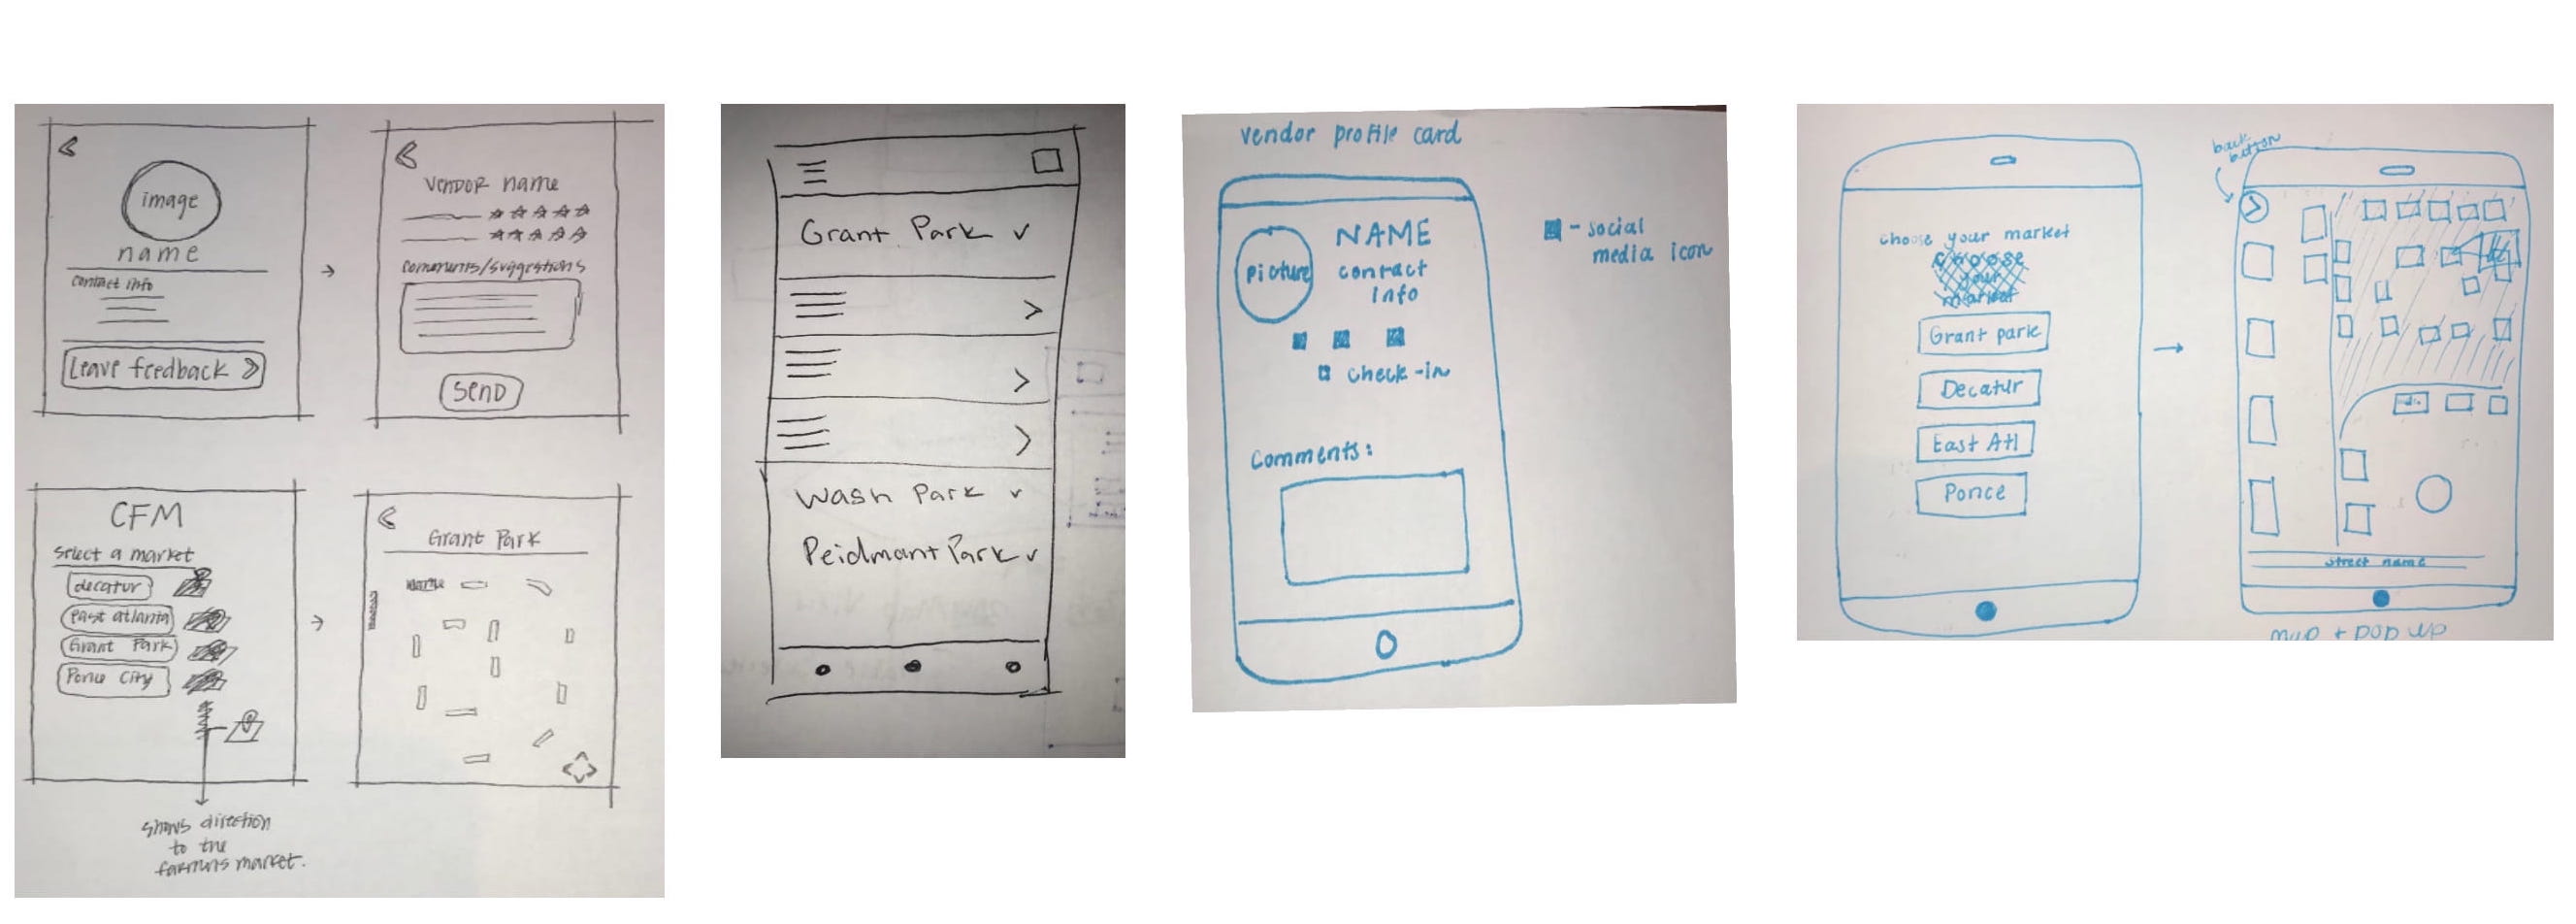 image
name
contact info
Leave feedback
VENDOR name
comments/suggestions
SEND
CFM
Select a market
decatur
East atlanta
Grant Park
Ponce City
shows direction
to the
farmers market.
Grant Park
name
Grant Park
Wash Park
Peidmant Park
vendor profile card
picture
NAME
contact
info
check-in
- social
media icon
Comments:
choose your market
choose
your
market
Grant park
Decatur
East Atl
Ponce
back
button
street name
map + pop up